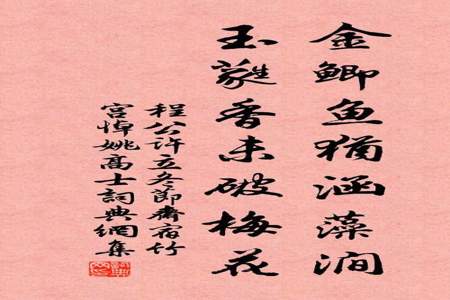 金鲫鱼犹涵藻涧
玉蕤香未破梅花
程公许立冬節齋宿竹
宫悼姚高士詞典網集